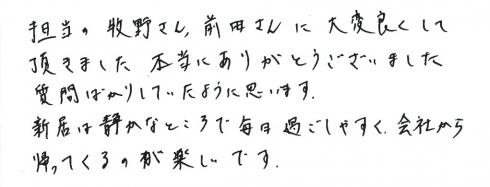 担当の牧野さん、前田さんに大変良くして
頂きました 本当にありがとうございました
質問ばかりしていたように思います.
新居は静かなところで毎日過ごしやすく、会社から
帰ってくるのが楽しいです.